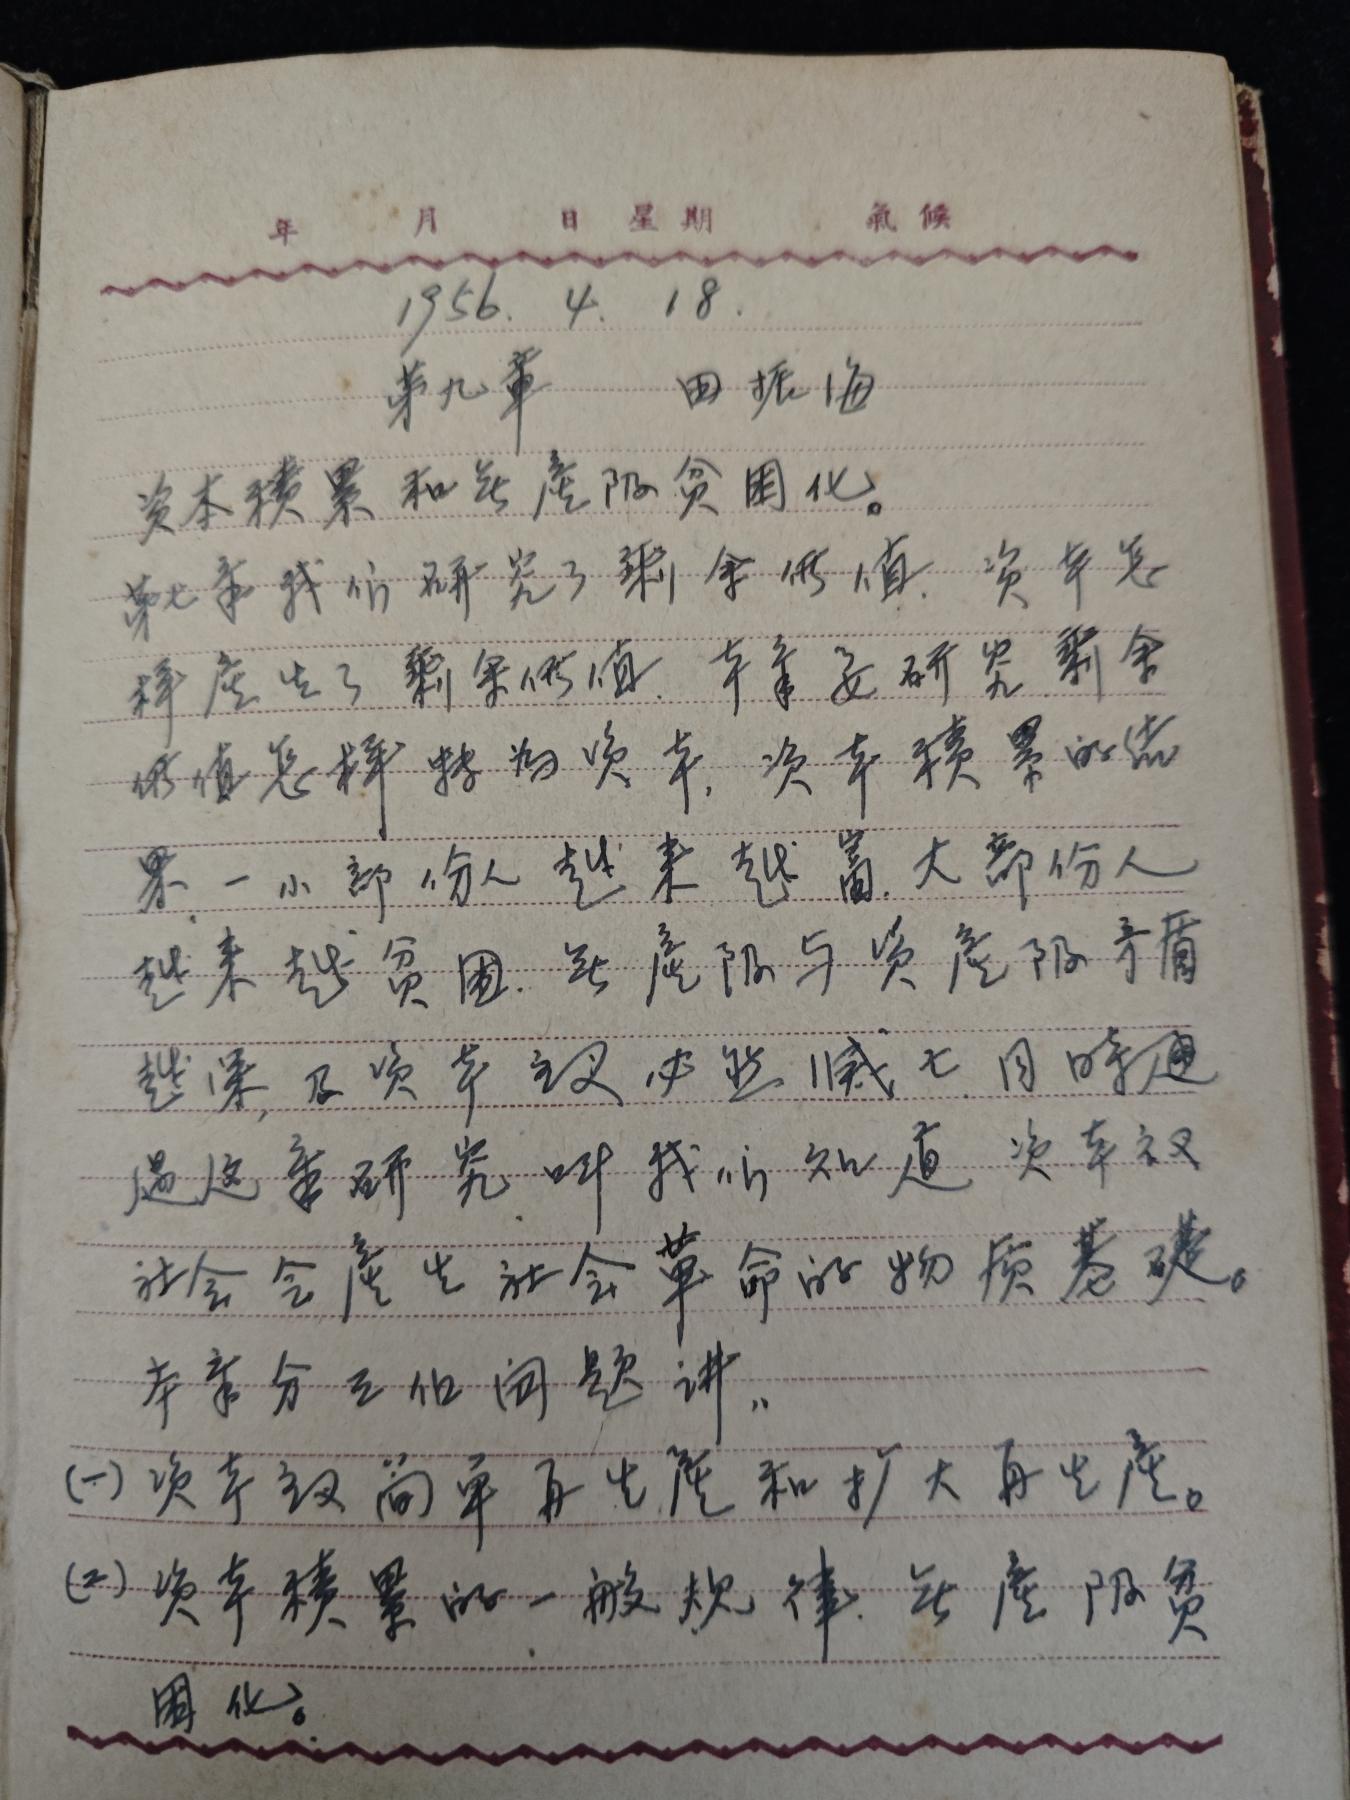 年 月 日 星期 氣候
1956. 4. 18.
第九章 田振海
资本積累和无產阶贫困化。
第七章我们研究了剩余价值.资本怎
样產生了剩余价值.本章要研究剩余
价值怎样轉为资本,资本積累的结
果.一小部份人越来越富.大部份人
越来越贫困.无產阶与资產阶矛盾
越深,及资本主义必然灭亡.同時通
过这章研究.叫我们知道资本主义
社会会產生社会革命的物质基礎。
本章分三个问题讲,,
(一)资本主义简单再生產和扩大再生產。
(二)资本積累的一般规律.无產阶贫
困化。